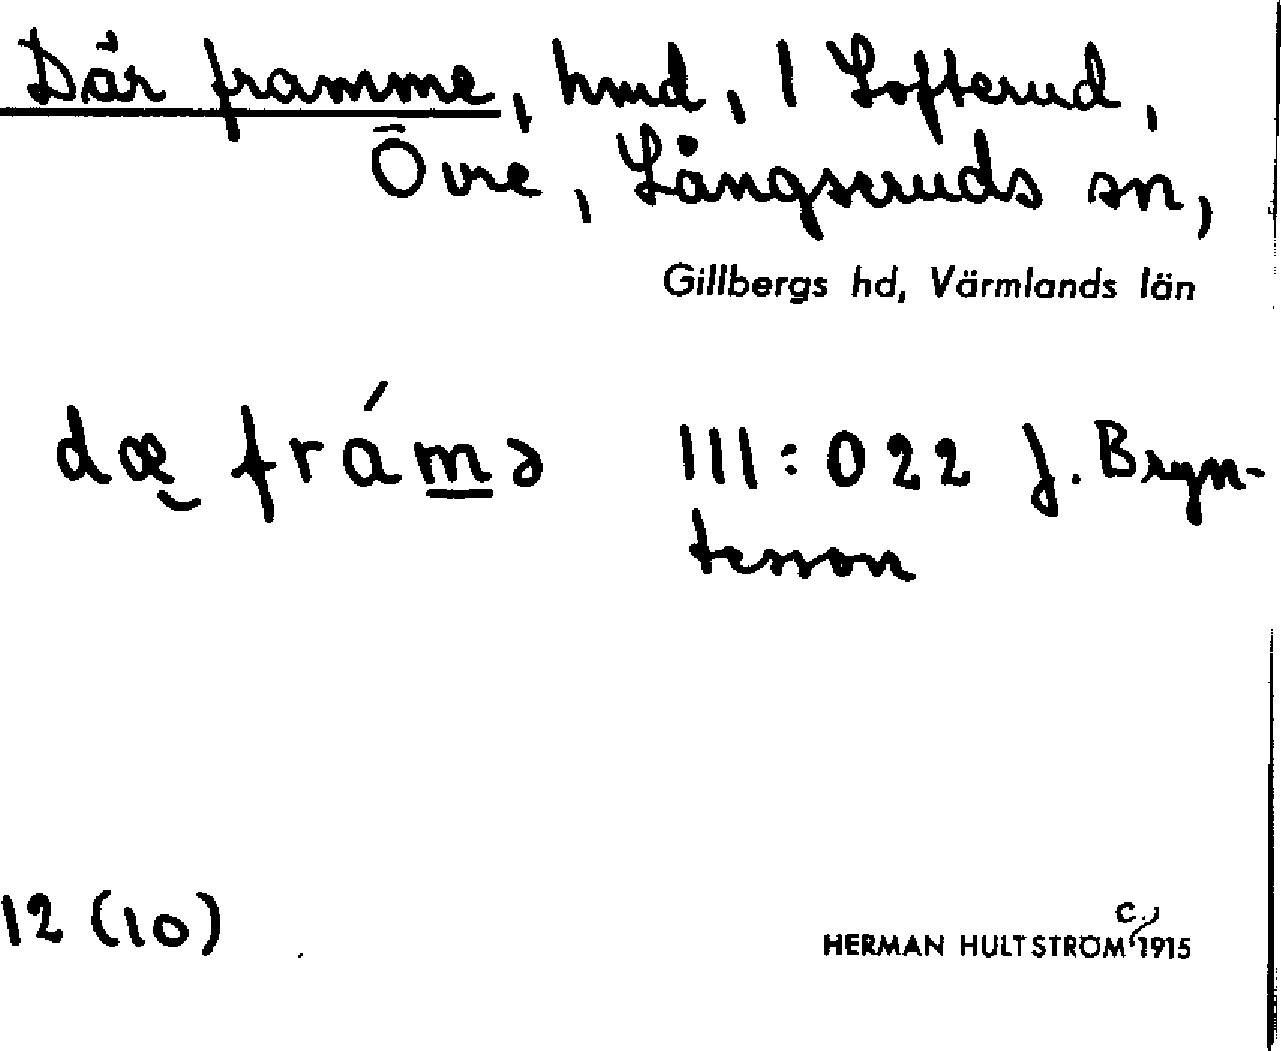 Där framme, hmd, 1 Lofterud,
Övre, Långseruds sn,
Gillbergs hd, Värmlands län
dæ̮ frám̲ə III:022 J. Bryn-
tesson
12 (10)
c.
HERMAN HULTSTRÖM 1915